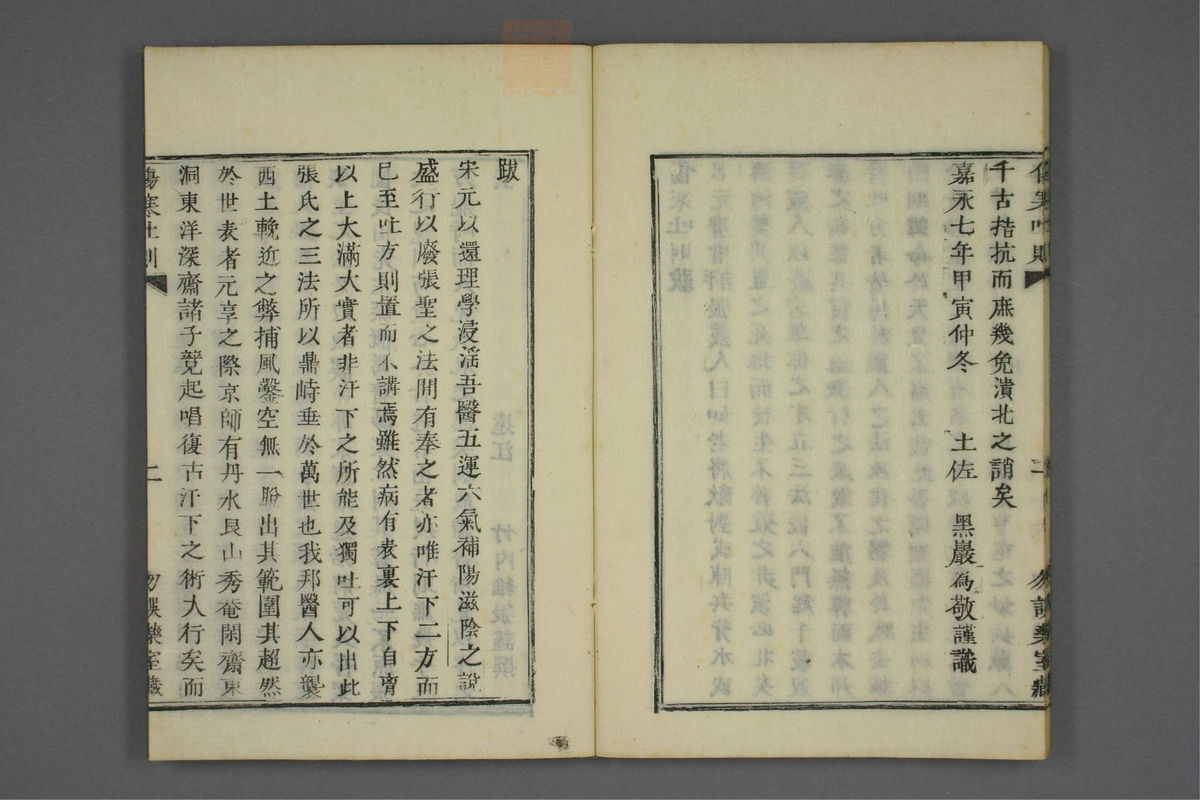 千古拮抗而庶幾免潰北之誚矣
嘉永七年甲寅仲冬 土佐 黑巖為敬謹識
傷寒吐則
二
跋
宋元以還理學浸淫吾醫五運六氣補陽滋陰之說
盛行以廢張聖之法間有奉之者亦唯汗下二方而
已至吐方則置而不講焉雖然病有表裏上下自胷
以上大滿大實者非汗下之所能及獨吐可以出此
張氏之三法所以鼎峙垂於萬世也我邦醫人亦襲
西土輓近之弊捕風鑿空無一脫出其範圍其超然
於世表者元享之際京師有丹水艮山秀菴閑齋東
洞東洋深齋諸子競起唱復古汗下之術大行矣而
傷寒吐則
二
勿誤藥室藏